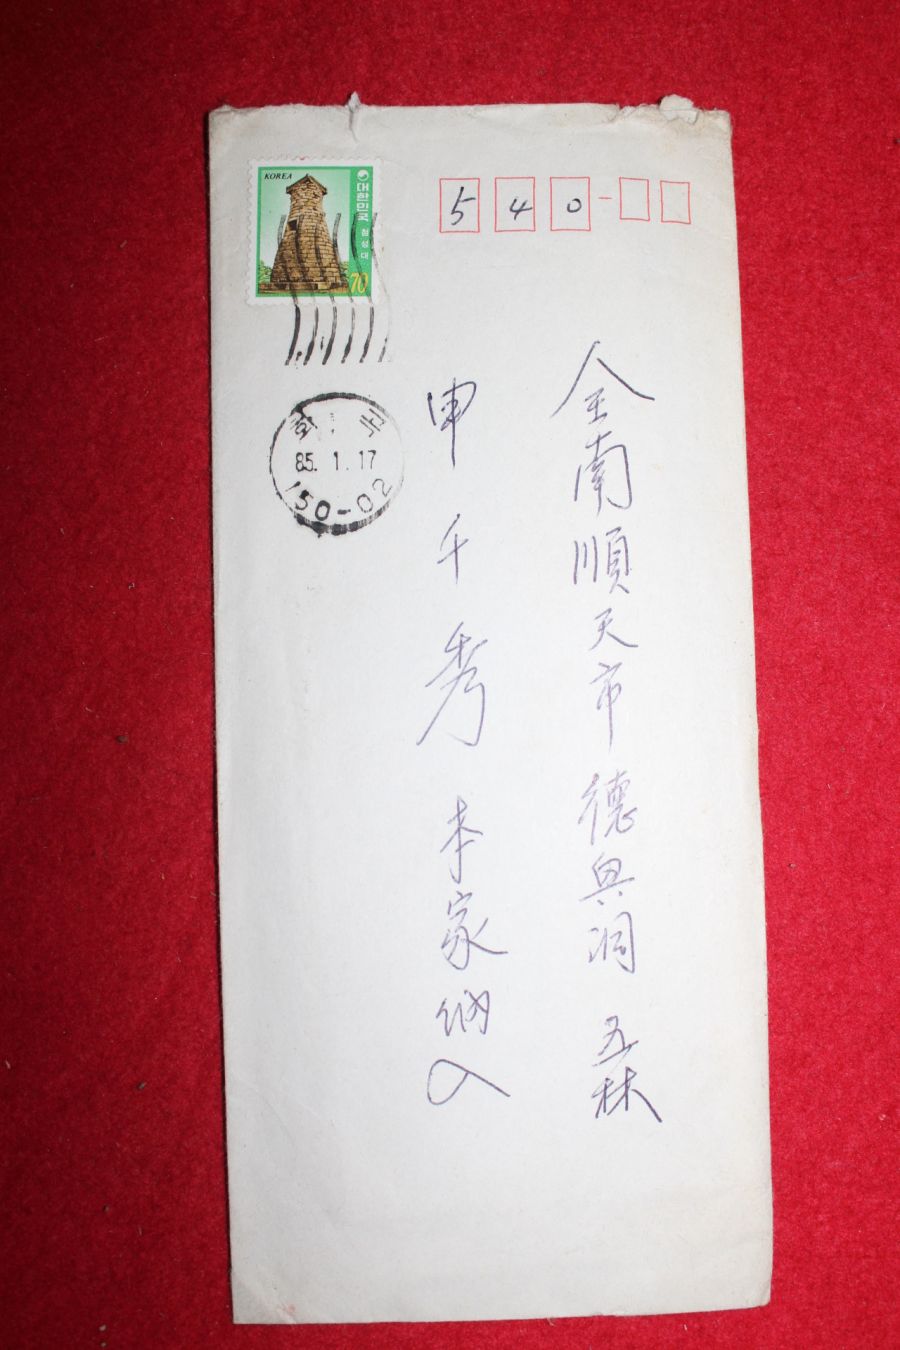 KOREA
대한민국 첨성대
70
540-
全南順天市 德興洞 五林
申千秀 本家納入
85. 1. 17
150-02